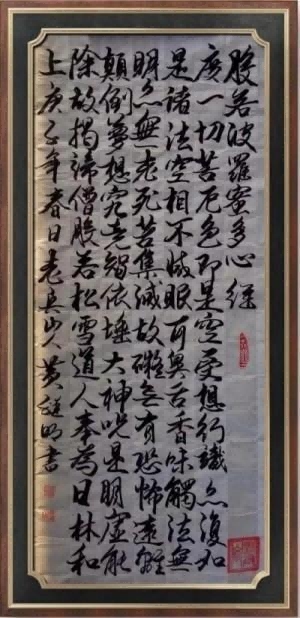 般若波羅蜜多心經
度一切苦厄色即是空受想行識亦復如
是諸法空相不滅眼耳鼻舌香味觸法無
明亦無老死苦集滅故礙無有恐怖遠離
顛倒夢想究竟智依埵大神咒是明虛能
除故揭諦僧般若松雪道人奉為日林和
上庚子年春日老真山人黃明書